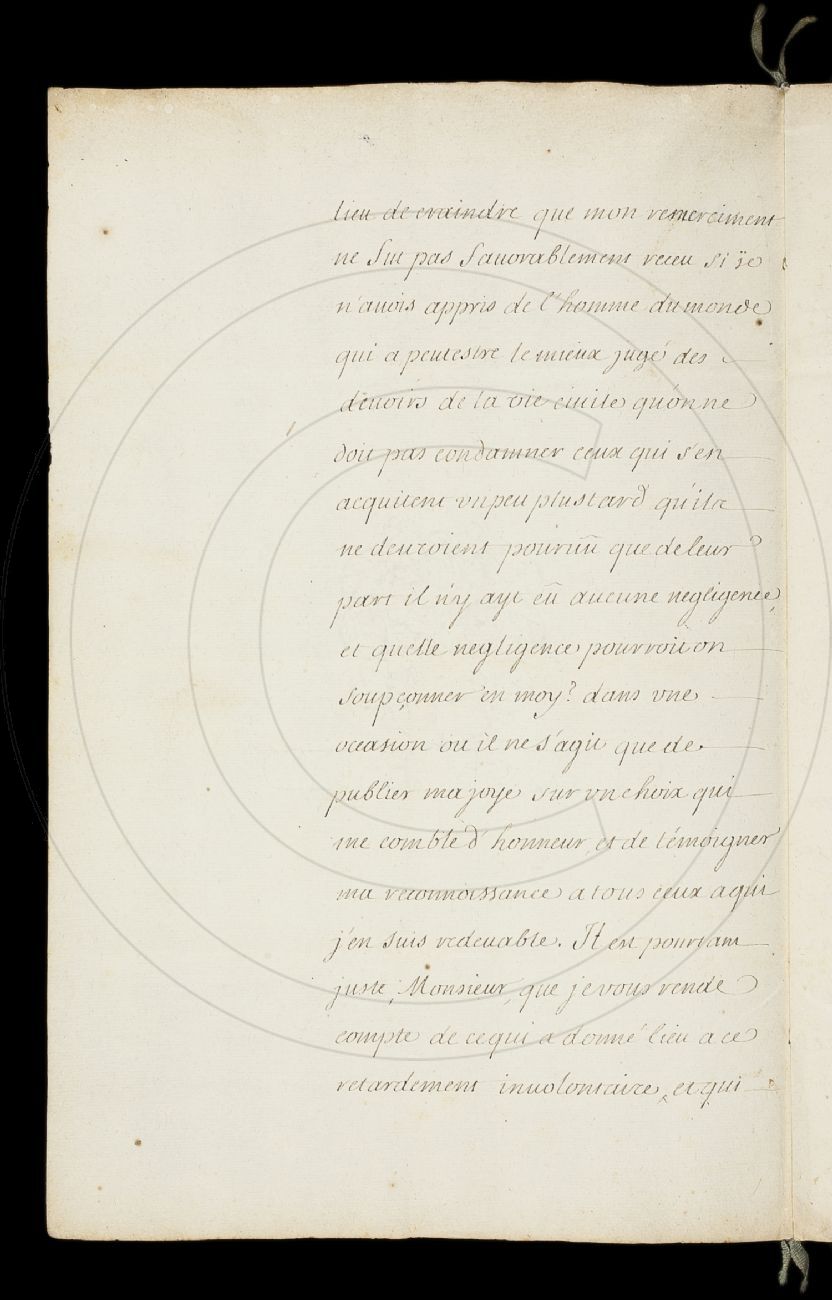 lieu de craindre que mon remerciment
ne fut pas favorablement receu si je
n'auois appris de l'homme du monde
qui a peutestre le mieux jugé des
deuoirs de la vie ciuile qu'on ne
doit pas condamner ceux qui s'en
acquitent vn peu plus tard qu'ils
ne deuroient pourüü que de leur
part il n'y ayt eü aucune negligence,
et quelle negligence pourroit on
soupçonner en moy? dans vne
occasion ou il ne s'agit que de
publier ma joye sur vn choix qui
me comble d'honneur, et de témoigner
ma reconnoissance a tous ceux a qui
j'en suis redeuable. Il est pourtant
juste, Monsieur, que je vous rende
compte de ce qui a donné lieu a ce
retardement inuolontaire, et qui